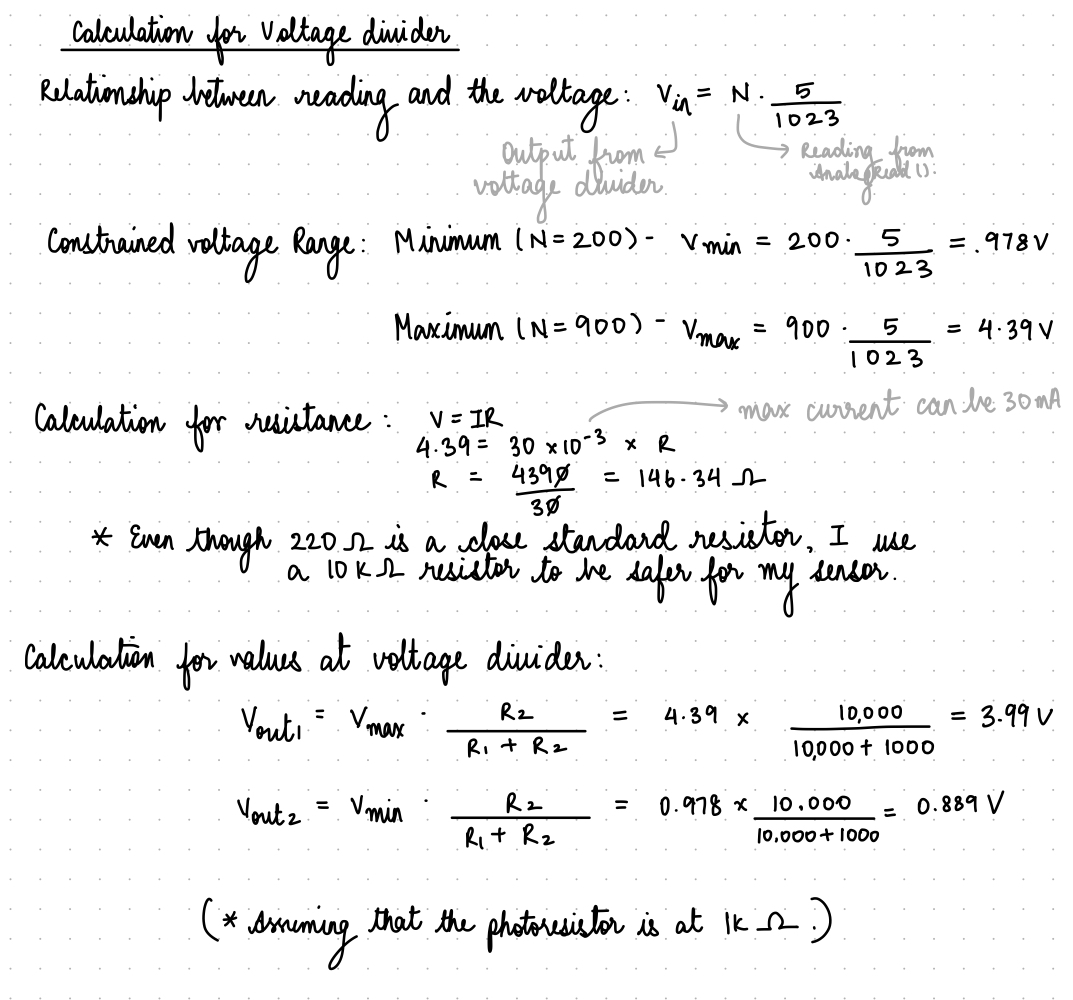 Calculation for Voltage divider
Relationship between reading and the voltage: Vin = N · 5/1023
Output from voltage divider
Reading from AnalogRead().
Constrained voltage Range: Minimum (N=200) - Vmin = 200 · 5/1023 = .978 V
Maximum (N=900) - Vmax = 900 · 5/1023 = 4.39 V
Calculation for resistance: V = IR
max current can be 30 mA
4.39 = 30 × 10⁻³ × R
R = 4390/30 = 146.34 Ω
* Even though 220 Ω is a close standard resistor, I use
a 10 K Ω resistor to be safer for my sensor.
Calculation for values at voltage divider:
Vout1 = Vmax · R2/(R1 + R2) = 4.39 × 10,000/(10,000 + 1000) = 3.99 V
Vout2 = Vmin · R2/(R1 + R2) = 0.978 × 10.000/(10.000 + 1000) = 0.889 V
(* Assuming that the photoresistor is at 1k Ω.)